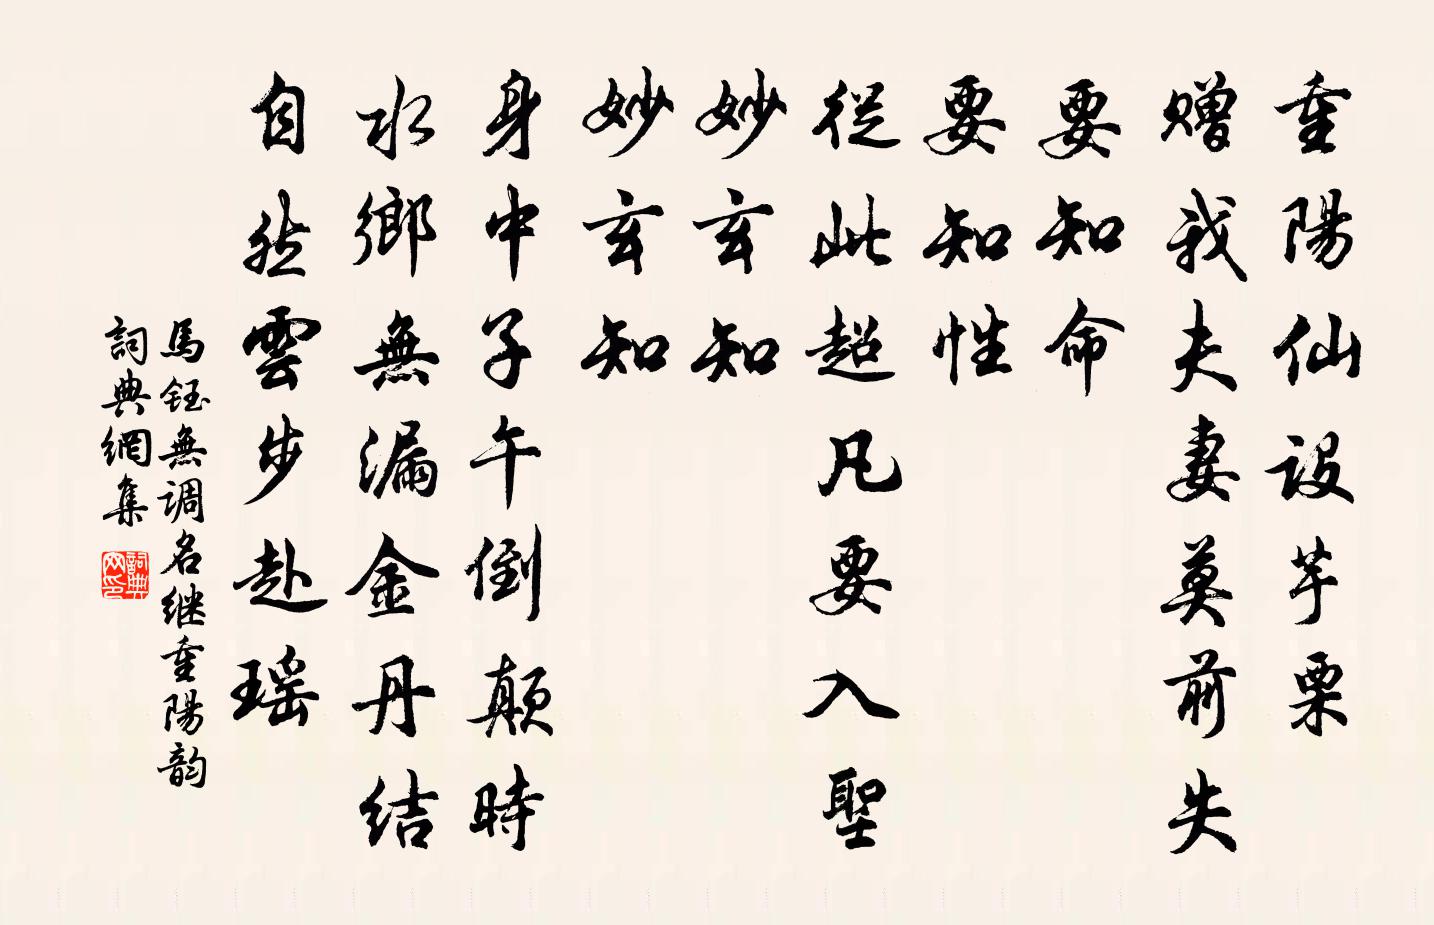 重陽仙設芋栗
赠我夫妻莫前失
要知命
要知性
從此超凡要入聖
妙玄知
妙玄知
身中子午倒顛時
水鄉無漏金丹結
自然雲步赴瑶
馬鈺無調名继重陽韵
詞典網集
詞典网印